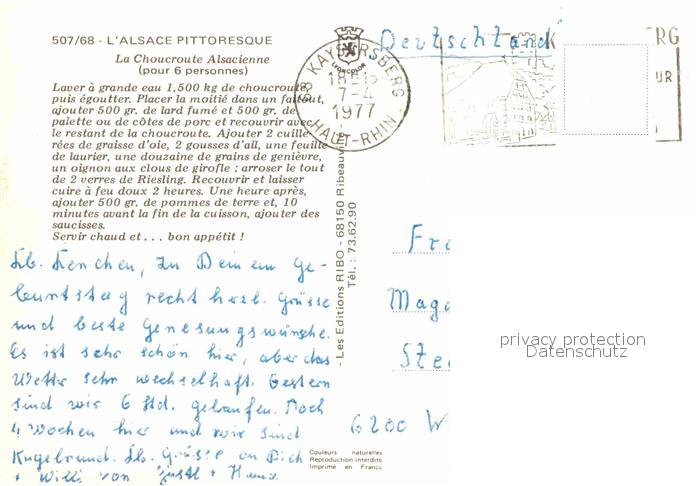 507/68 - L'ALSACE PITTORESQUE
La Choucroute Alsacienne
(pour 6 personnes)
Laver à grande eau 1,500 kg de choucroute,
puis égoutter. Placer la moitié dans un faitout,
ajouter 500 gr. de lard fumé et 500 gr. de
palette ou de côtes de porc et recouvrir avec
le restant de la choucroute. Ajouter 2 cuille-
rées de graisse d'oie, 2 gousses d'ail, une feuille
de laurier, une douzaine de grains de genièvre,
un oignon aux clous de girofle ; arroser le tout
de 2 verres de Riesling. Recouvrir et laisser
cuire à feu doux 2 heures. Une heure après,
ajouter 500 gr. de pommes de terre et, 10
minutes avant la fin de la cuisson, ajouter des
saucisses.
Servir chaud et... bon appétit !
Lb. Lenchen, Zu Deinem Ge-
burtstag recht herzl. Grüsse
und beste Genesungswünsche.
Es ist sehr schön hier, aber das
Wetter sehr wechselhaft. Gestern
sind wir 6 Std. gelaufen. Noch
4 Wochen hier und wir sind
Kugelrund. Lb. Grüsse an Dich
+ Willi von + Hans
LYONCOLOR
- Les Editions RIBO - 68150 Ribeauv
Tél. : 73.62.90
Couleurs naturelles
Reproduction interdite
Imprimé en France
68 KAYSERSBERG
18H15
7-4
1977
HAUT-RHIN
K RG
UR
Deutschland
Fr
Mag
Ste
6200 W
privacy protection
Datenschutz